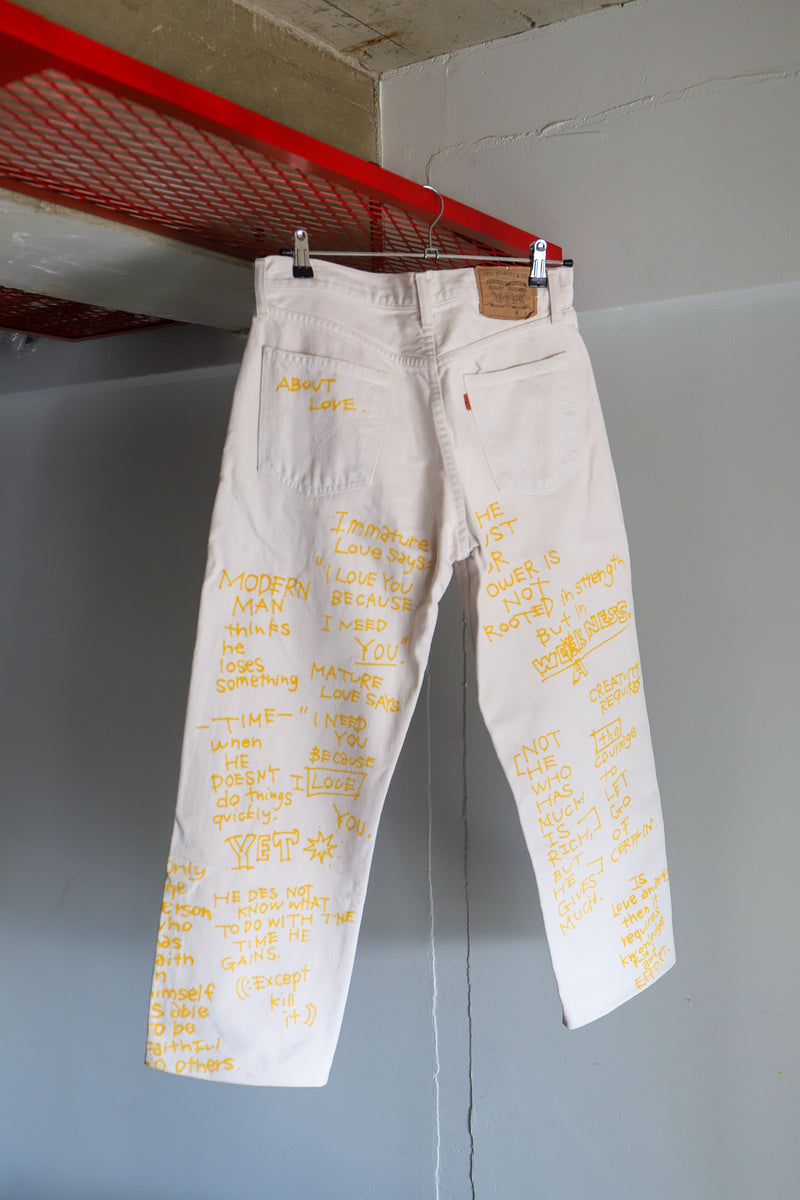 LEVI STRAUSS & CO
ABOUT
LOVE.
Immature
Love says:
"I LOVE YOU
BECAUSE
I NEED
YOU."
MATURE
LOVE SAYS
"I NEED
YOU
BECAUSE
I LOVE
YOU.
MODERN
MAN
thinks
he
loses
something
-TIME-
when
HE
DOESN'T
do things
quickly.
YET
HE DES NOT
KNOW WHAT
TO DO WITH THE
TIME HE
GAINS.
((Except
kill
it))
only
he
erson
ho
as
aith
n
imself
s able
o be
aithful
o others.
HE
UST
OR
OWER IS
NOT
ROOTED in strength
But in
WEEKNESS.
A
CREATIVITY
REQUIRES
the
courage
TO
LET
GO
OF
CERTAIN.
[NOT
HE
WHO
HAS
MUCH
IS
RICH,]
BUT
HE
GIVES
MUCH.
IS
love an art
then it
requires
kwonledge
and
EFFORT.